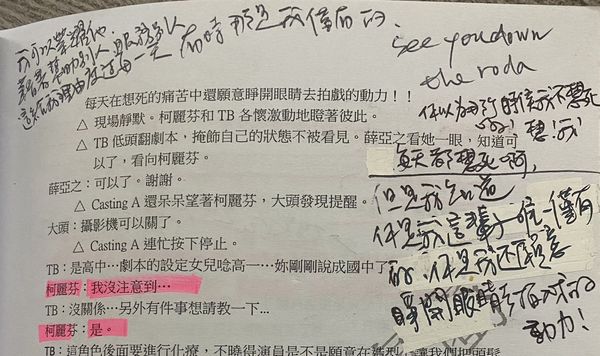 我可以榮耀他
著者幫助別人，服務眾人
這些的理由度過每一天
有時那是我僅有的、
see you down
the roda
你以為那時候我不想死
嗎！想！我
每天都想死啊，
但是我知道
你是我這輩子唯一僅有
的、你是我還願意
睜開眼睛去拍戲的
動力！
每天在想死的痛苦中還願意睜開眼睛去拍戲的動力！！
△ 現場靜默。柯麗芬和 TB 各懷激動地瞪著彼此。
△ TB 低頭翻劇本，掩飾自己的狀態不被看見。薛亞之看她一眼，知道可
以了，看向柯麗芬。
薛亞之：可以了。謝謝。
△ Casting A 還呆呆望著柯麗芬，大頭發現提醒。
大頭：攝影機可以關了。
△ Casting A 連忙按下停止。
TB：是高中…劇本的設定女兒唸高一…妳剛剛說成國中了
柯麗芬：我沒注意到…
TB：沒關係…另外有件事想請教一下…
柯麗芬：是。
TB：這角色後面要進行化療，不曉得演員是不是願意在